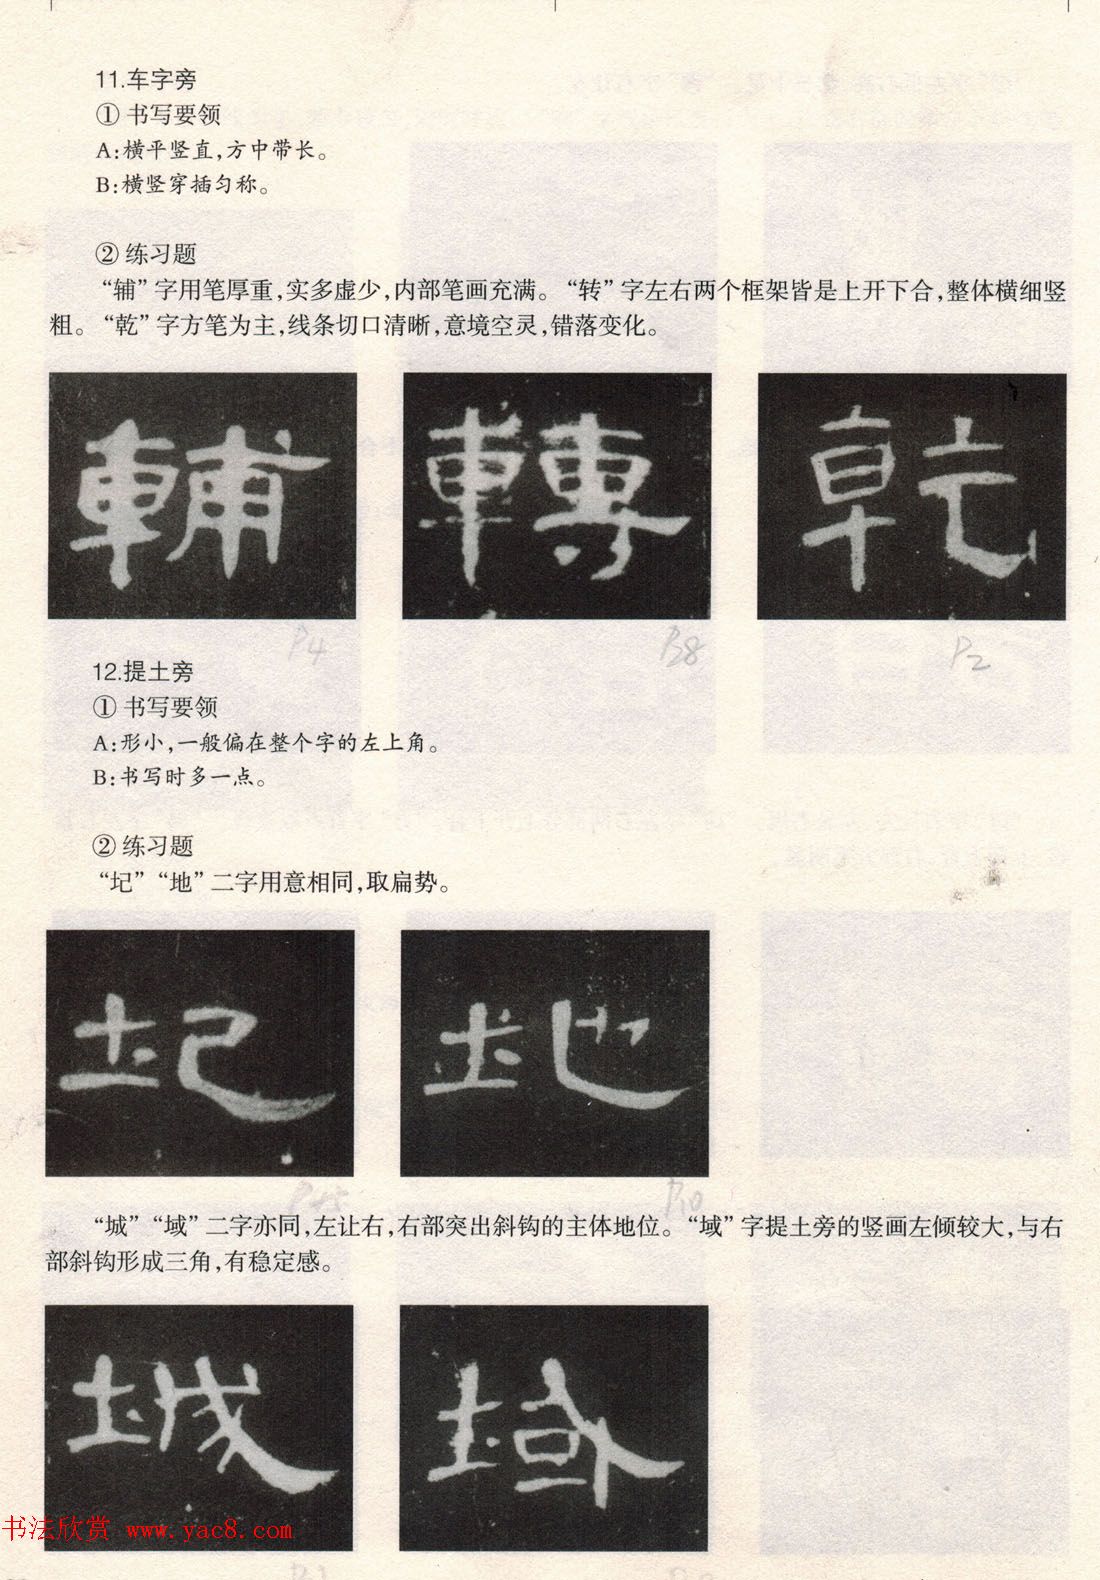 11.车字旁
① 书写要领
A:横平竖直,方中带长。
B:横竖穿插匀称。
② 练习题
“辅”字用笔厚重,实多虚少,内部笔画充满。“转”字左右两个框架皆是上开下合,整体横细竖
粗。“乾”字方笔为主,线条切口清晰,意境空灵,错落变化。
輔 轉 乾
P4 P38 P2
12.提土旁
① 书写要领
A:形小,一般偏在整个字的左上角。
B:书写时多一点。
② 练习题
“圮”“地”二字用意相同,取扁势。
圮 地
P10
“城”“域”二字亦同,左让右,右部突出斜钩的主体地位。“域”字提土旁的竖画左倾较大,与右
部斜钩形成三角,有稳定感。
城 域
书法欣赏 www.yac8.com